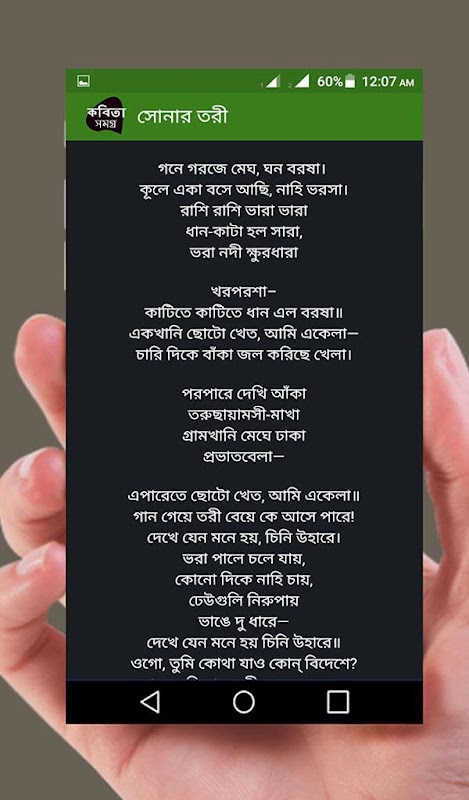 60% 12:07 AM
কবিতা
সমগ্র
সোনার তরী
গনে গরজে মেঘ, ঘন বরষা।
কূলে একা বসে আছি, নাহি ভরসা।
রাশি রাশি ভারা ভারা
ধান-কাটা হল সারা,
ভরা নদী ক্ষুরধারা
খরপরশা–
কাটিতে কাটিতে ধান এল বরষা॥
একখানি ছোটো খেত, আমি একেলা—
চারি দিকে বাঁকা জল করিছে খেলা।
পরপারে দেখি আঁকা
তরুছায়ামসী-মাখা
গ্রামখানি মেঘে ঢাকা
প্রভাতবেলা—
এপারেতে ছোটো খেত, আমি একেলা॥
গান গেয়ে তরী বেয়ে কে আসে পারে!
দেখে যেন মনে হয়, চিনি উহারে।
ভরা পালে চলে যায়,
কোনো দিকে নাহি চায়,
ঢেউগুলি নিরুপায়
ভাঙে দু ধারে—
দেখে যেন মনে হয় চিনি উহারে॥
ওগো, তুমি কোথা যাও কোন্ বিদেশে?